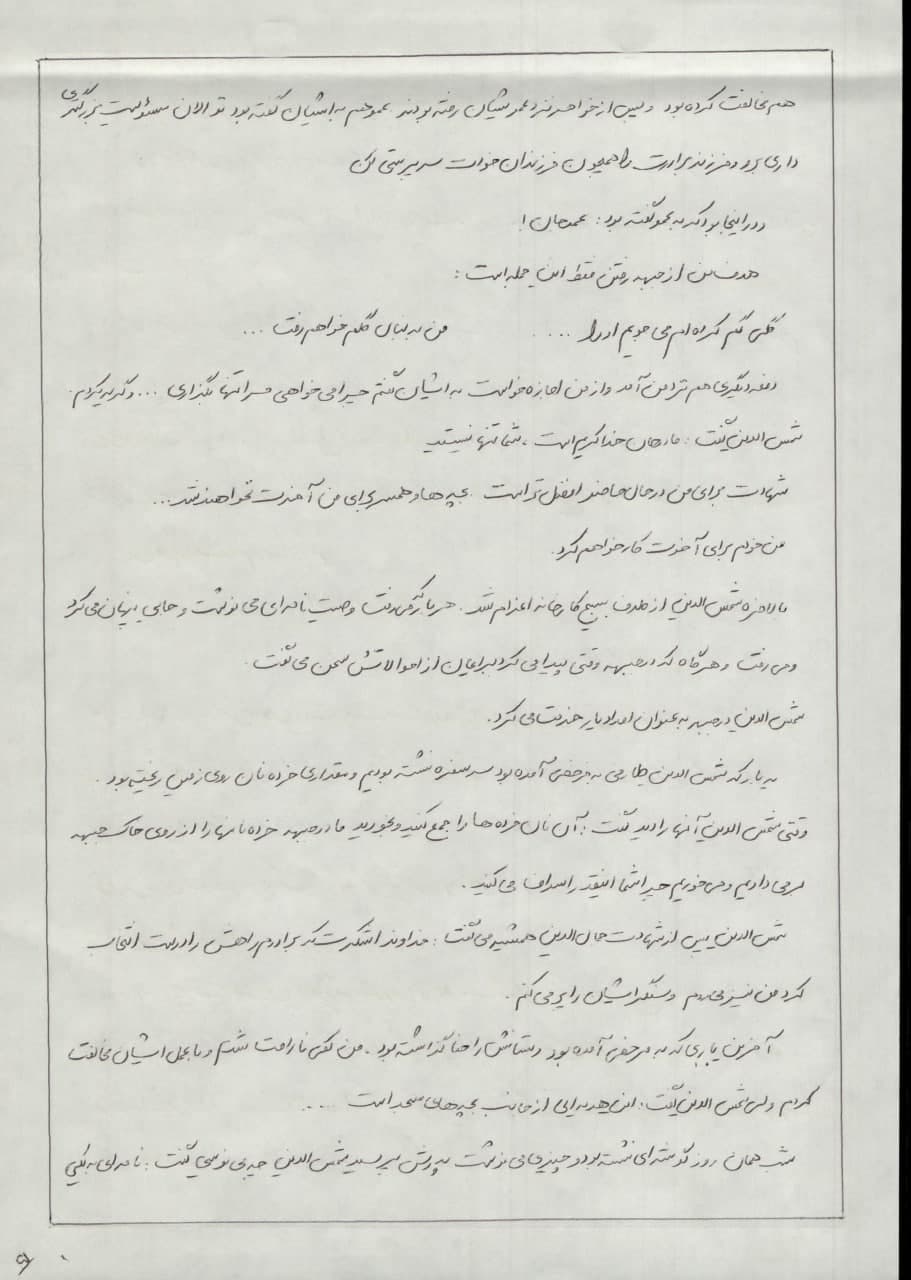 هم مخالفت کرده بود و پس از خواهر نزد عمویشان رفته بودند. عمو هم به ایشان گفته بود تو الان مسئولیت بزرگتری
داری برو و فرزند برادرت را همچون فرزندان خودت سرپرستی کن
و در اینجا بود که به عمو گفته بود: عموجان!
هدف من از جبهه رفتن فقط این جمله است:
گلی گم کرده ام می جویم او را .... من به دنبال گلم خواهم رفت ...
دفعه دیگری هم نزد من آمد و از من اجازه خواست به ایشان گفتم چرا می خواهی مرا تنها بگذاری ... و گریه کردم.
شمس الدین گفت: مادرجان خدا کریم است، شما تنها نیستید
شهادت برای من در حال حاضر افضل تر است. بچه ها و همسر برای من آخرت نخواهند شد...
من خودم برای آخرت کار خواهم کرد.
بالاخره شمس الدین از طرف بسیج کارخانه اعزام شد. هر بار که می رفت وصیت نامه ای می نوشت و جایی پنهان می کرد
و می رفت و هرگاه که در جبهه وقتی پیدا می کرد برایمان از احوالاتش سخن می گفت.
شمس الدین در جبهه به عنوان امدادیار خدمت می کرد.
یه بار که شمس الدین طارمی به مرخصی آمده بود سر سفره نشسته بودیم و مقداری خرده نان روی زمین ریخته بود.
وقتی شمس الدین آنها را دید گفت: آن نان خرده ها را جمع کنید و بخورید ما در جبهه خرده نانها را از روی خاک جبهه
برمی داریم و می خوریم چرا شما اینقدر اسراف می کنید.
شمس الدین پس از شهادت جمال الدین همیشه می گفت: خداوندا شکرت که برادرم راهش را درست انتخاب
کرد من نیز می روم و سنگر ایشان را پر می کنم.
آخرین باری که به مرخصی آمده بود دستانش را حنا گذاشته بود. من کمی ناراحت شدم و با عمل ایشان مخالفت
کردم ولی شمس الدین گفت: این هدیه ایی از جانب بچه های مسجد است ...
شب همان روز گوشه ای نشسته بود و چیزی می نوشت پدرش پرسید شمس الدین چه می نویسی گفت: نامه ای به یکی